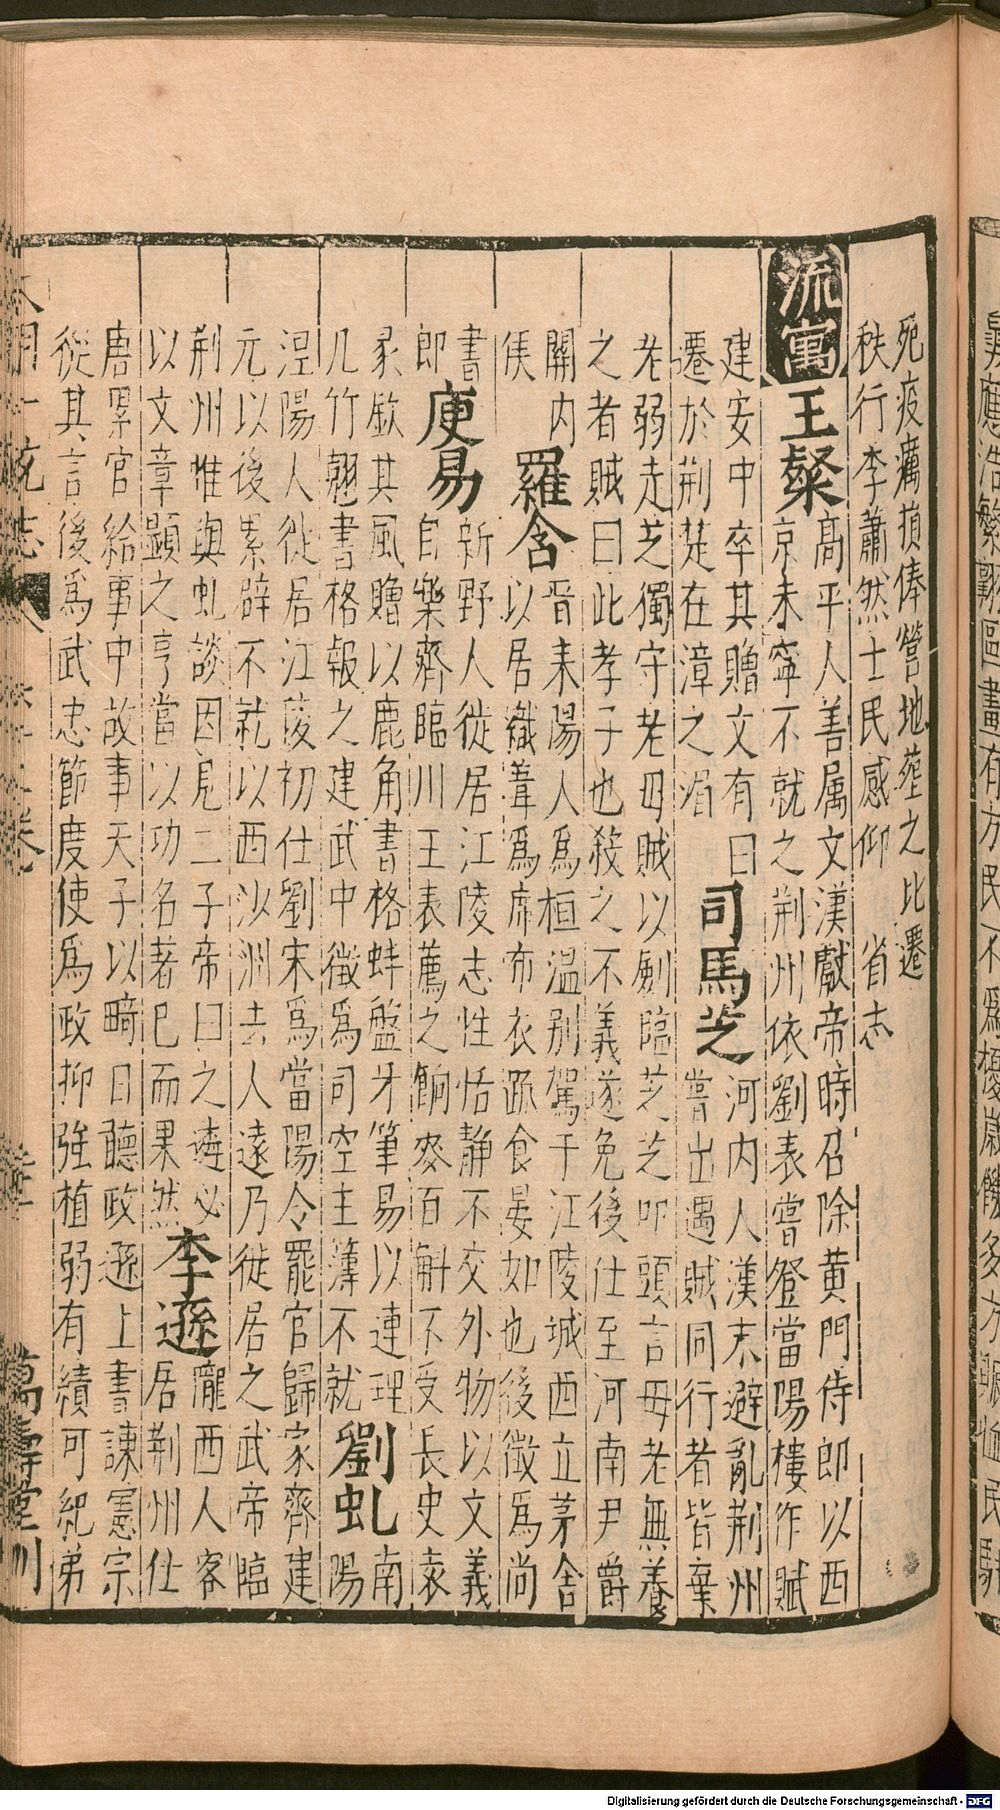 死疫癘損俸營地葬之比遷
秩行李蕭然士民感仰 省志
流寓 王粲 高平人善属文漢獻帝時召除黄門侍郎以西
京未寧不就之荆州依劉表嘗登當陽樓作賦
建安中卒其贈文有曰 司馬芝 河内人漢末避亂荆州
遷於荆楚在漳之湄 嘗出遇賊同行者皆棄
老弱走芝獨守老母賊以劍臨芝芝叩頭言母老無養
之者賊曰此孝子也殺之不義遂免後仕至河南尹爵
關内 羅含 晋耒陽人爲桓温别駕于江陵城西立茅舍
侯 以居織葦爲席布衣蔬食晏如也後徵爲尚
書 庾易 新野人徙居江陵志性恬静不交外物以文義
郎 自樂齊臨川王表薦之餉麥百斛不受長史袁
彖欽其風贈以鹿角書格蚌盤牙筆易以連理
几竹翹書格報之建武中徵爲司空主簿不就 劉虬 南
涅陽人徙居江陵初仕劉宋爲當陽令罷官歸家齊建
元以後累辟不就以西沙洲去人遠乃徙居之武帝臨
荆州惟與虬談因見二子帝曰之遴必 李遜 隴西人客
以文章顯之亨當以功名著已而果然 居荆州仕
唐累官給事中故事天子以畸日聽政遜上書諫憲宗
從其言後爲武忠節度使爲政抑強植弱有績可紀弟
一統志
卷
萬壽堂刊
畫有方民不爲
Digitalisierung gefördert durch die Deutsche Forschungsgemeinschaft - DFG